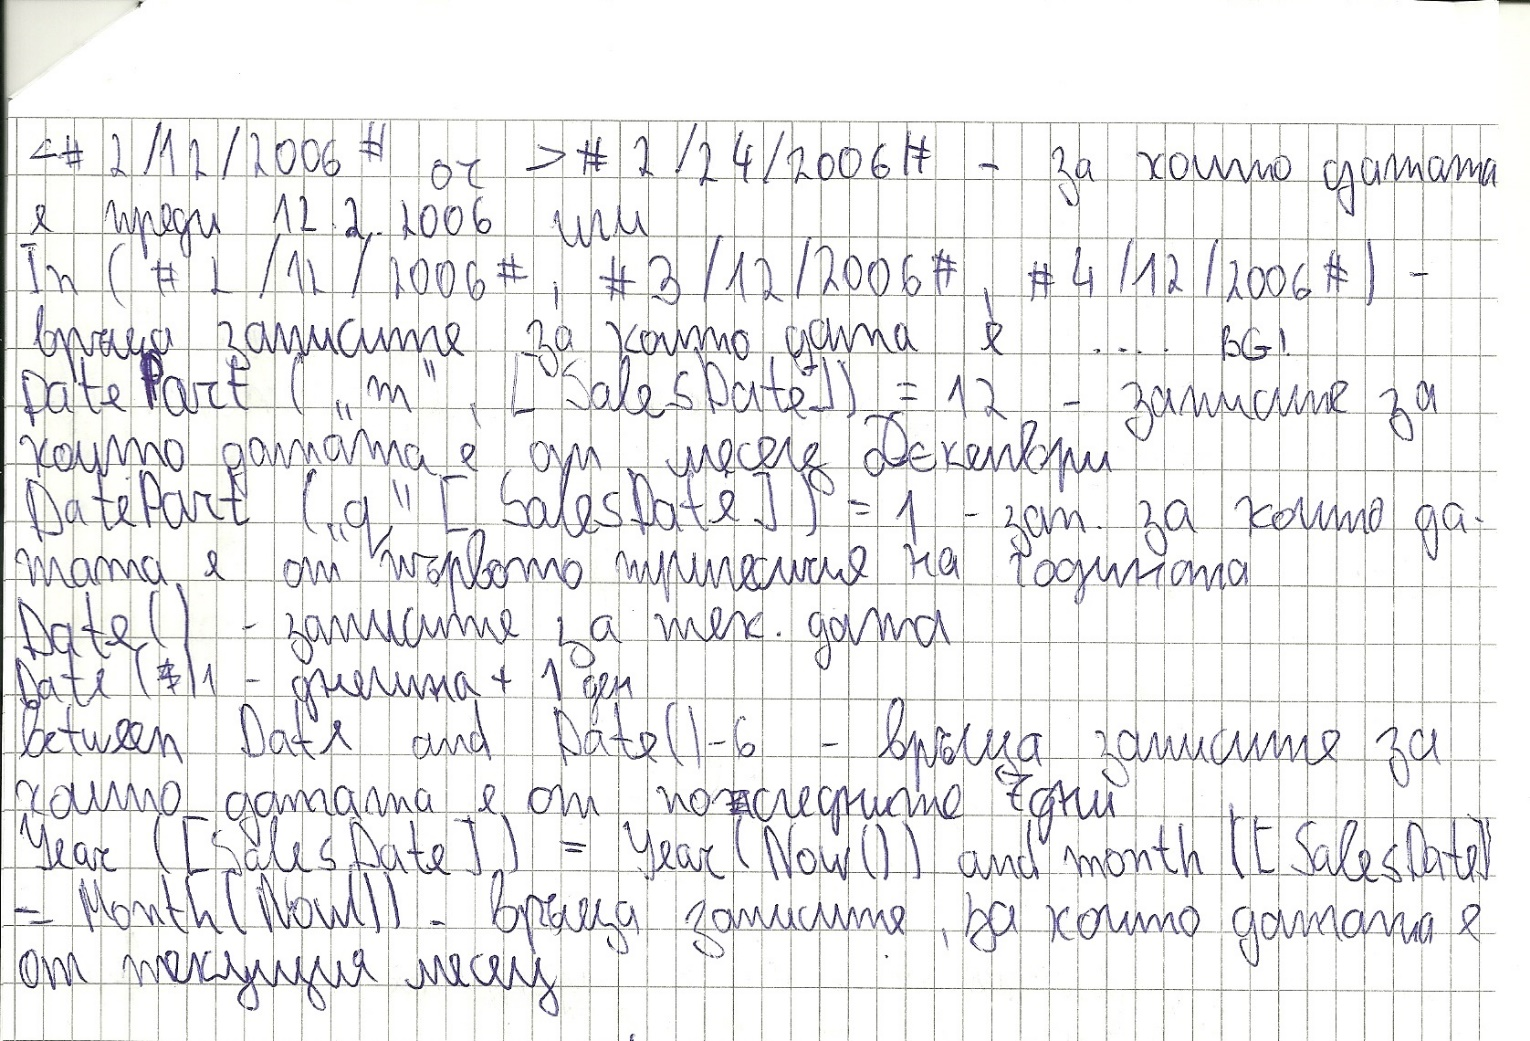 <# 2/12/2006 # or > # 2/24/2006 # - за които датата
е преди 12.2.2006 или
In ( # 2 /12 / 2006 # , # 3 /12 /2006 # , # 4 /12 /2006 # ) -
връща записите за които дата е .... BG!
DatePart ( „m" , [ SalesDate ] ) = 12 - записите за
които датата е от месец Декември
DatePart („q" [ SalesDate ] ) = 1 - зап. за които да-
тата е от първото тримесичие на годината
Date () - записите за тек. дата
Date ( )1 - днешна + 1 ден
between Date and Date()-6 - връща записите за
които датата е от последните 7 дни
Year ([SalesDate]) = Year(Now()) and month ([SalesDate]
= Month(Now()) - връща записите, за които датата е
от текущия месец